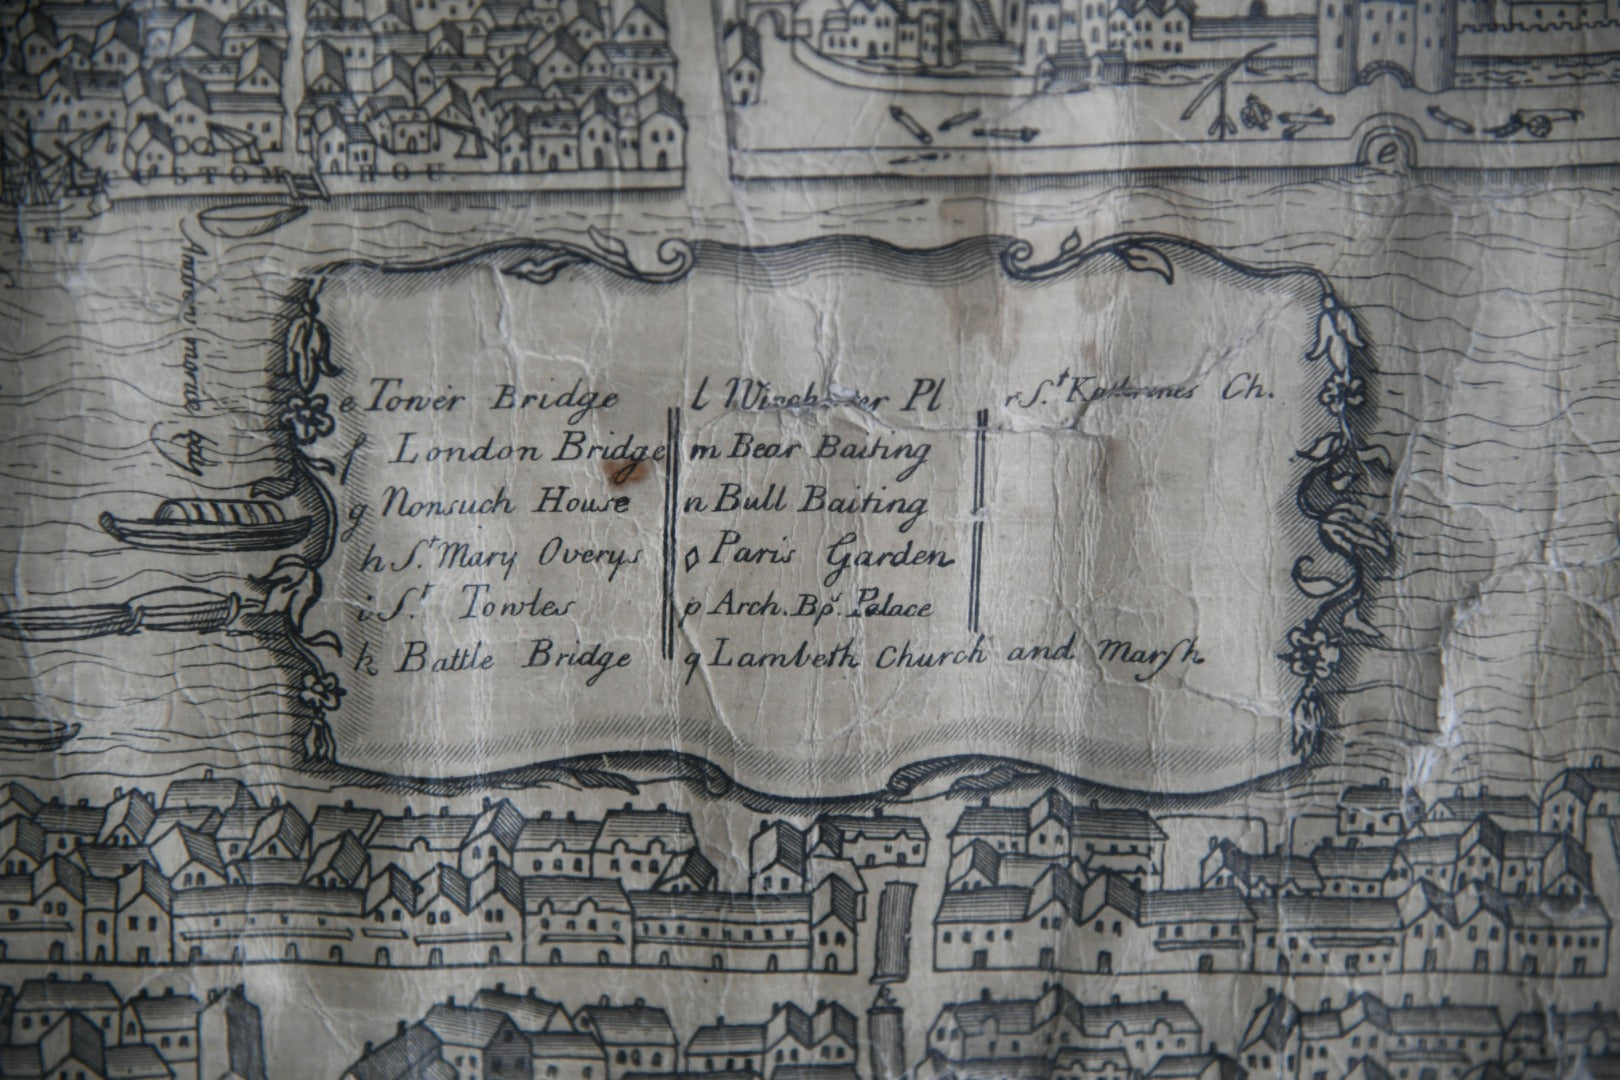 CUSTOM HOU.
ATE
e
Andrew morade key
e Tower Bridge
f London Bridge
g Nonsuch House
h S.t Mary Overys
i S.t Towles
k Battle Bridge
l Winchester Pl
m Bear Baiting
n Bull Baiting
o Paris Garden
p Arch. Bp.s Palace
q Lambeth Church and Marſh.
r S.t Katterines Ch.
k